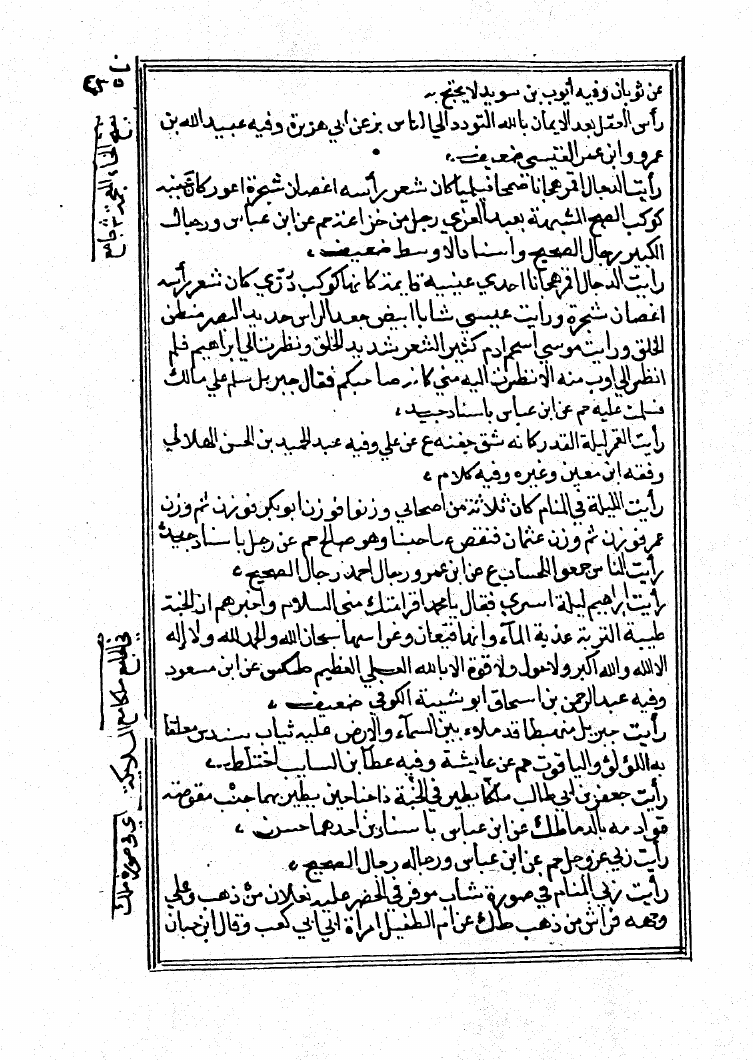 عن ثوبان وفيه أيوب بن سويد لا يحتج به
رأس العقل بعد الايمان بالله التودد الي الناس بز عن ابي هريرة وفيه عبيد الله بن
عمرو وابن عمر القيسي ضعيف
رأيت الدجال اقمر هجانا ضخما فيلميا كان شعر رأسه اغصان شجرة اعور كان عينه
كوكب الصبح اشبهه بعبد العزي رجل من خزاعة حم عن ابن عباس ورجال
الكبير رجال الصحيح واسناد الاوسط ضعيف
رأيت الدجال اقمر هجانا احدي عينيه قايمة كانها كوكب دري كان شعر رأسه
اغصان شجرة ورايت عيسي شابا ابيض جعد الراس حديد البصر مبطن
الخلق ورايت موسي اسحم ادم كثير الشعر شديد الخلق ونظرت الي ابراهيم فلم
انظر الي ارب منه الا نظرت اليه مني كانه صاحبكم فقال جبريل سلم علي مالك
فسلمت عليه حم عن ابن عباس باسناد جيد
رأيت القمر ليلة القدر كانه شق جفنة ع عن علي وفيه عبد الحميد بن الحسن الهلالي
وثقه ابن معين وغيره وفيه كلام
رأيت الليلة في المنام كان ثلاثة من اصحابي وزنوا فوزن أبو بكر فوزن ثم وزن
عمر فوزن ثم وزن عثمان فنقص صاحبنا وهو صالح حم عن رجل باسناد جيد
رأيت الناس جمعوا للحساب ع عن ابن عمر ورجال احمد رجال الصحيح
رأيت ابراهيم ليلة اسري فقال يا محمد اقرأ امتك مني السلام واخبرهم ان الجنة
طيبة التربة عذبة المآء وانها قيعان وغراسها سبحان الله والحمد لله ولا إله
الا الله والله أكبر ولا حول ولا قوة الا بالله العلي العظيم طكص عن ابن مسعود
وفيه عبد الرحمن بن اسحاق ابو شيبة الكوفي ضعيف
رأيت جبريل منهبطا قد ملاء بين السمآء والارض عليه ثياب سندس معلقا
به اللؤلؤ والياقوت حم عن عايشة وفيه عطا بن السايب اختلط
رأيت جعفر بن ابي طالب ملكا يطير في الجنة ذا جناحين يطير بهما حيث مقصوصة
قوادمه بالدما طك عن ابن عباس باسنادين احدهما حسن
رأيت ربي عز وجل حم عن ابن عباس ورجاله رجال الصحيح
رأيت ربي المنام في صورة شاب موفر في الخضر عليه نعلان من ذهب وعلي
وجهه فراش من ذهب طك عن ام الطفيل امرأة ابي بن كعب وقال ابن حبان
في الجامع ملكا مع الملائكة
اي في صورة ملك